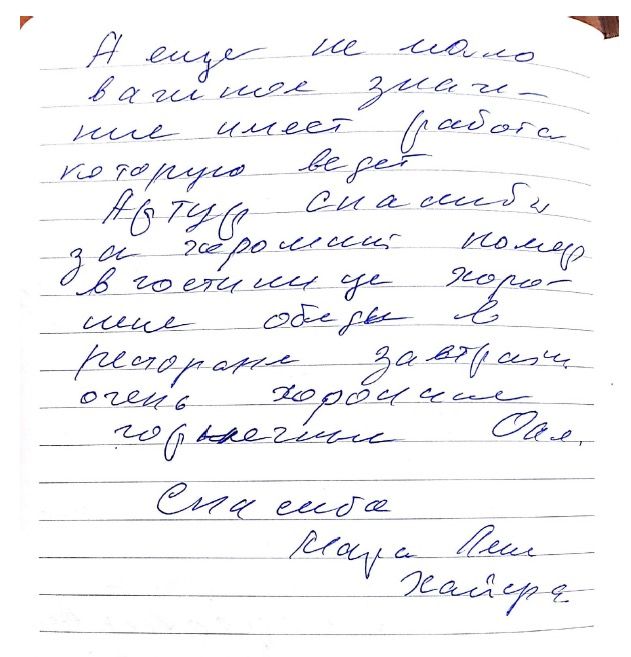 А еще не мало
важное значе-
ние имеет работа
которую ведет
Артур спасибо
за хороший номер
в гостинице хоро-
шие обеды в
ресторане завтраки
очень хорошие
горничные
Спасибо
Хайфа